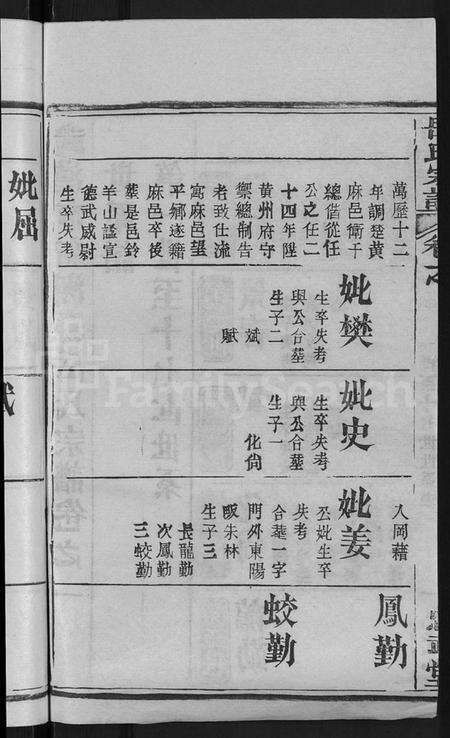 萬歷十二
年調楚黃
麻邑衛千
總偕從任
公之任二
十四年陞
黃州府守
禦總制告
老致仕流
寓麻邑望
平鄉遂籍
麻邑卒後
塟是邑鈴
羊山謚宣
德武威尉
生卒失考
妣樊
生卒失考
與公合塟
生子二
斌
賦
妣史
生卒失考
與公合塟
生子一
化尙
入岡籍
妣姜
公妣生卒
失考
合塟一字
門外東陽
畈朱林
生子三
長龍勤
次鳳勤
三蛟勤
鳳勤
蛟勤
妣屈
FamilySearch